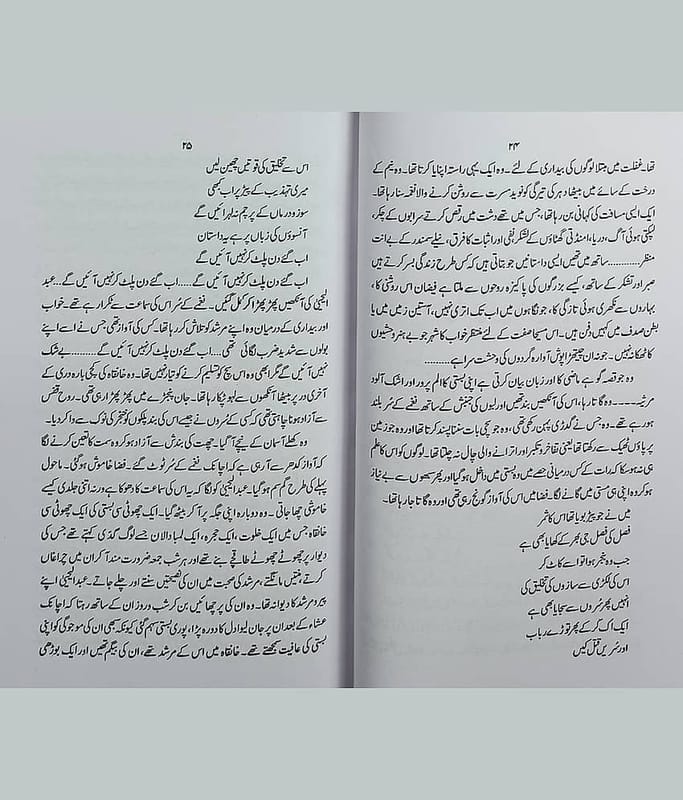 ۲۴
تھا۔ غفلت میں مبتلا لوگوں کی بیداری کے لئے۔ وہ ایک یہی راستہ اپنایا کرتا تھا۔ وہ نیم کے
درخت کے سائے میں بیٹھا دہر کی تیرگی کو نوید مسرت سے روشن کرنے والا نغمہ سنا رہا تھا۔
ایک ایسی مسافت کی کہانی بن رہا تھا، جس میں تھے دشت میں رقص کرتے سرابوں کے پیکر،
لپکتی ہوئی آگ، دریا، امنڈتی گھٹاؤں کے لشکر، نفی اور اثبات کا فرق، نیلے سمندر کے بے انت
منظر.......... ساتھ میں تھیں ایسی داستانیں جو بتاتی ہیں کہ کس طرح زندگی بسر کرتے ہیں
صبر اور تشکر کے ساتھ، کیسے بزرگوں کی پاکیزہ روحوں سے ملتا ہے فیضان اس روشنی کا،
بہاروں سے نکھری ہوئی تازگی کا، جو نگاہوں میں اب تک اتری نہیں، آستین زمیں میں یا
بطن صدف میں کہیں دفن ہیں۔ اس مسیحا صفت کے لئے منتظر خواب کا شہر جو بے ہنر وحشیوں
کا ٹھکانہ نہیں۔ جو نہ ان چیتھڑا پوش آوارہ گردوں کی وحشت سرا ہے..........
وہ جو قصہ گو ہے ماضی کا اور زبان بیان کرتی ہے اپنی بستی کا الم پرور اور اشک آلود
مرثیہ...... وہ گاتا رہا، اس کی آنکھیں بند تھیں اور لبوں کی جنبش کے ساتھ نغمے کے سُر بلند
ہو رہے تھے۔ وہ جس نے گدڑی پہن رکھی تھی، وہ جو سچی بات سننا پسند کرتا تھا اور وہ جو زمین
پر پاؤں ٹھیک سے رکھتا تھا یعنی تفاخر و تکبر اور اترانے والی چال نہ چلتا تھا۔ لوگوں کو اس کا علم
ہی نہ ہو سکا کہ رات کے کس درمیانی حصے میں وہ بستی میں داخل ہو گیا اور پھر سبھوں سے بے نیاز
ہو کر وہ اپنی ہی مستی میں گانے لگا۔ فضا میں اس کی آواز گونج رہی تھی اور وہ گاتا جا رہا تھا۔
میں نے جو پیڑ بویا تھا اس کا ثمر
فصل کی فصل جی بھر کے کھایا بھی ہے
جب وہ بنجر ہوا تو اسے کاٹ کر
اس کی لکڑی سے سازوں کی تخلیق کی
انہیں پھر سُروں سے سجایا بھی ہے
ایک اک کر کے پھر توڑے رباب
اور سُریں قتل کیں
۲۵
اس سے تخلیق کی قوتیں چھین لیں
میری تہذیب کے پیڑ پر اب کبھی
سوز و درماں کے پرچم نہ لہرائیں گے
آنسوؤں کی زباں پر ہے یہ داستاں
اب گئے دن پلٹ کر نہیں آئیں گے
اب گئے دن پلٹ کر نہیں آئیں گے..... اب گئے دن پلٹ کر نہیں آئیں گے... عبد
الحیٔ کی آنکھیں پھڑپھڑا کر کھل گئیں۔ نغمے کے سُر اس کی سماعت سے ٹکرا رہے تھے۔ خواب
اور بیداری کے درمیان وہ اپنے مرشد کو تلاش کر رہا تھا۔ کس کی آواز تھی جس نے اسے اپنے
بولوں سے شدید ضرب لگائی تھی..... اب گئے دن پلٹ کر نہیں آئیں گے.......... بے شک
نہیں آئیں گے مگر ابھی وہ اس سچ کو تسلیم کرنے کو تیار نہیں تھا۔ وہ خانقاہ کی کچی بارہ دری کے
آخری در پر بیٹھا آنکھوں سے لہو ٹپکا رہا تھا۔ جان پنجڑے میں پھڑپھڑا رہی تھی۔ روح قفس
سے آزاد ہونا چاہتی تھی کہ کسی کے سُروں نے جیسے اس کی بند پلکوں کو خنجر کی نوک سے وا کر دیا۔
وہ کھلے آسمان کے نیچے آ گیا۔ چھت کی بندش سے آزاد ہو کر وہ سمت کا تعین کرنے لگا
کہ آواز کدھر سے آ رہی ہے کہ اچانک نغمے کے سُر ٹوٹ گئے۔ فضا خاموش ہو گئی۔ ماحول
پہلے کی طرح گم سم ہو گیا۔ عبد الحیٔ کو لگا کہ یہ اس کی سماعت کا دھوکا ہے ورنہ اتنی جلدی کیسے
خاموشی چھا جاتی۔ وہ دوبارہ اپنی جگہ پر آ کر بیٹھ گیا۔ ایک چھوٹی سی بستی کی ایک چھوٹی سی
خانقاہ جس میں ایک خلوت، ایک حجرہ، ایک لمبا دالان جسے لوگ گدّی کہتے تھے جس کی
دیوار پر چھوٹے چھوٹے طاقچے بنے تھے اور ہر شب جمعہ ضرورت مند آ کر ان میں چراغاں
کرتے، منتیں مانگتے، مرشد کی صحبت میں ان کی نصیحتیں سنتے اور چلے جاتے۔ عبد الحیٔ اپنے
پیر و مرشد کا دیوانہ تھا۔ وہ ان کی پرچھائیں بن کر شب و روز ان کے ساتھ رہتا کہ اچانک
عشاء کے بعد ان پر جان لیوا دل کا دورہ پڑا۔ پوری بستی سہم گئی کیونکہ سبھی ان کی موجودگی کو اپنی
بستی کی عافیت سمجھتے تھے۔ خانقاہ میں اس کے مرشد تھے، ان کی بیگم تھیں اور ایک بوڑھی